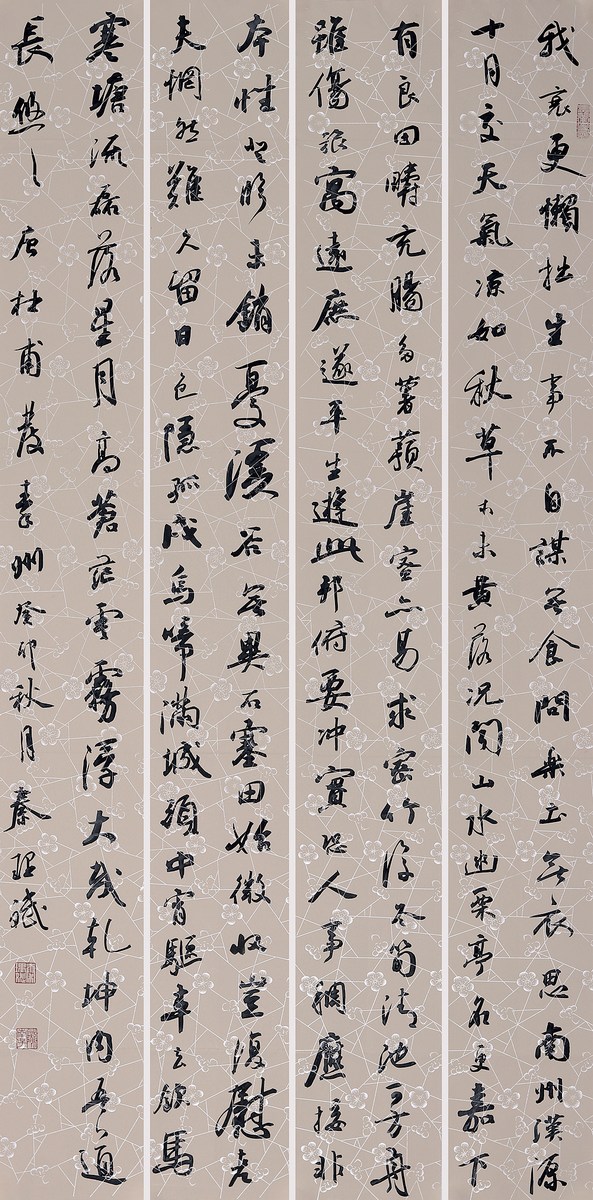 我衰更懶拙生事不自謀無食問樂土無衣思南州漢源
十月交天氣涼如秋草木未黃落況聞山水幽栗亭名更嘉下
有良田疇充腸多薯崖蜜亦易求密竹復冬筍清池可方舟
雖傷旅寓遠庶遂平生遊此邦俯要冲實恐人事稠應接非
本性登臨未銷憂溪谷無異石塞田始微收豈復慰老
夫惘然難久留日色隱孤戍烏啼滿城頭中宵驅車去飲馬
寒塘流磊落星月高蒼茫雲霧浮大哉乾坤內吾道
長悠悠唐杜甫發秦州癸卯秋月秦斌